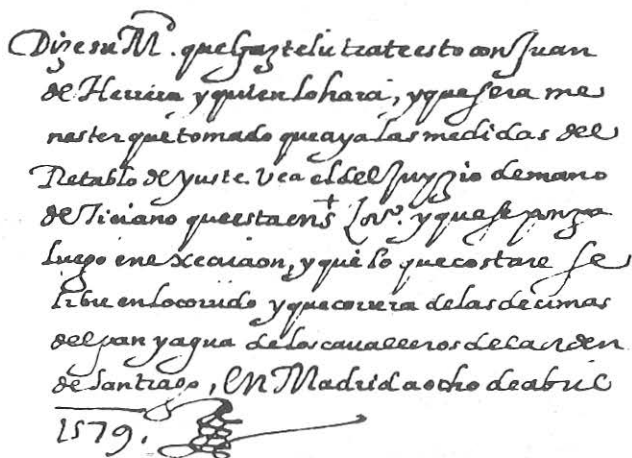 Dize su M. que gaztelu trate esto con Juan
de Herrera y quien lo hara, y que sera me
nester que tomado que aya las medidas del
Retablo de yuste. Vea el del Juyzio de mano
de Ticiano que esta en s Lor. y que se ponga
luego en execucion, y que lo que costare se
libre en lo corrido y que correra de las decimas
del pan y agua de los cavalleros de la orden
de Santiago, EN Madrid a ocho de abril
1579.